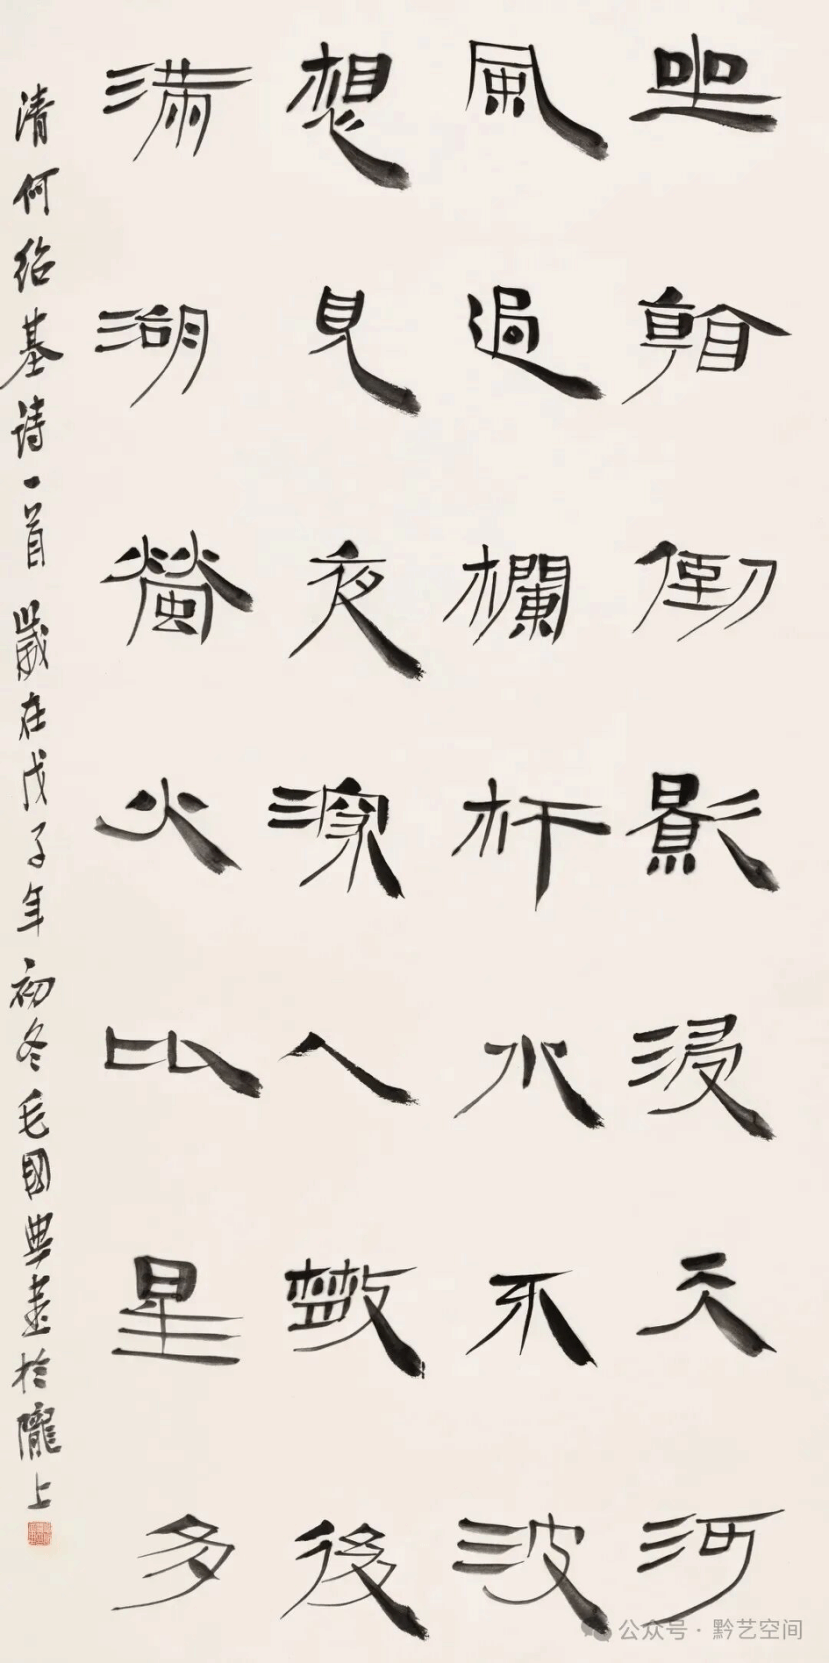 坐看倒影浸天河
風過欄杆水不波
想見夜深人散後
滿湖螢火比星多
清何绍基诗一首 歲在戊子年初冬毛國典書於隴上
公众号·黔艺空间